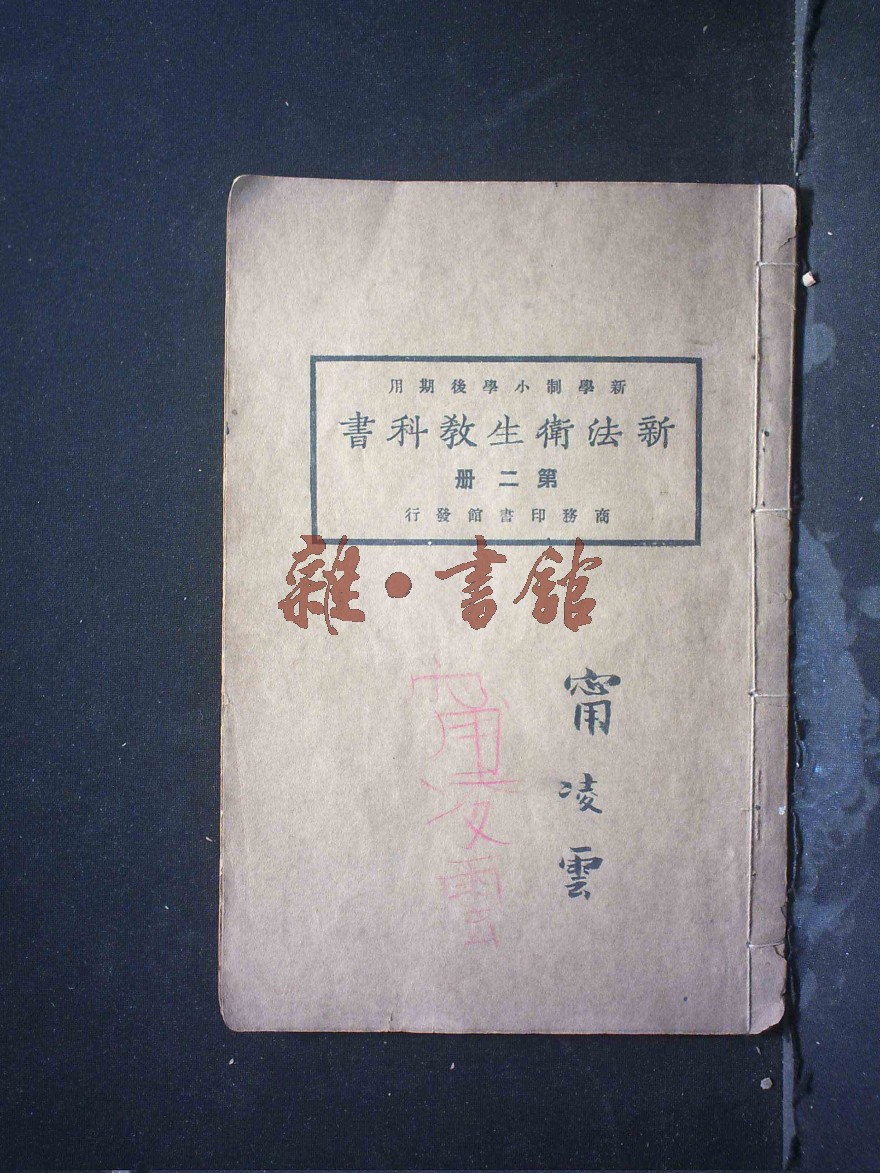 新學制小學後期用
新法衛生教科書
第二册
商務印書館發行
雜·書館
甯凌雲
甯凌雲